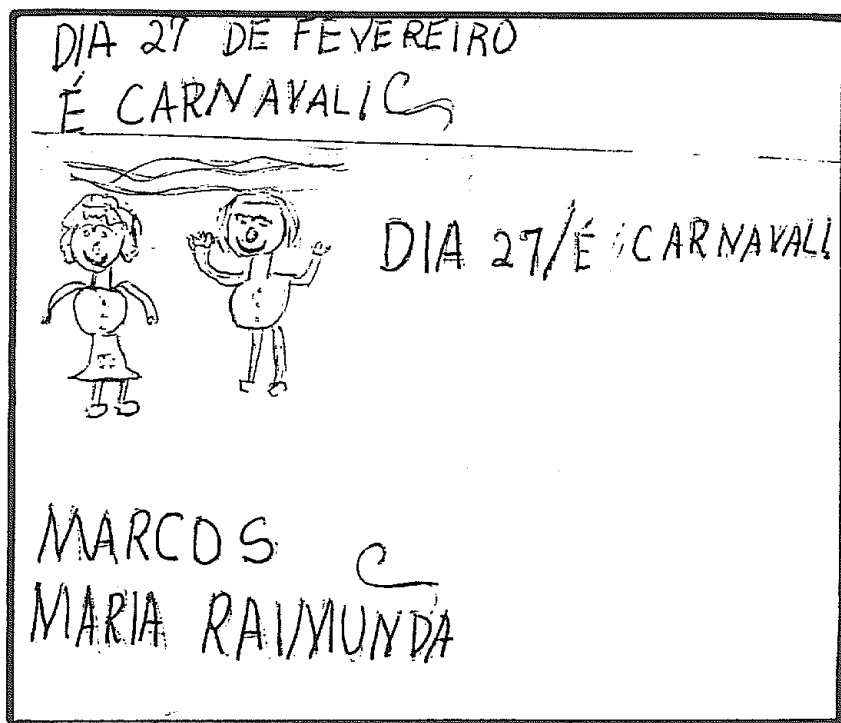 DIA 27 DE FEVEREIRO
É CARNAVAL!
DIA 27/É CARNAVAL!
MARCOS
MARIA RAIMUNDA